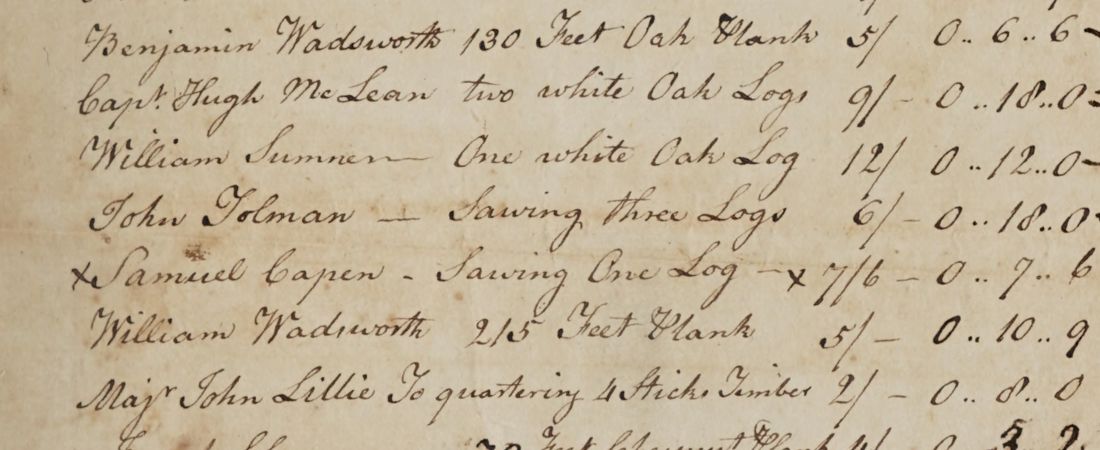 Benjamin Wadsworth 130 Feet Oak Plank 5/ 0.. 6.. 6 -
Capt. Hugh McLean two white Oak Logs 9/ - 0..18..0
William Sumner — One white Oak Log 12/ 0..12..0 -
John Tolman — Sawing three Logs 6/ - 0..18..0 -
x Samuel Capen - Sawing One Log - x 7/6 - 0.. 7.. 6
William Wadsworth 215 Feet Plank 5/ - 0.. 10.. 9
Majr John Lillie To quartering 4 Sticks Timber 2/ - 0.. 8.. 0
70 Feet Plank 4/ 0 3 2